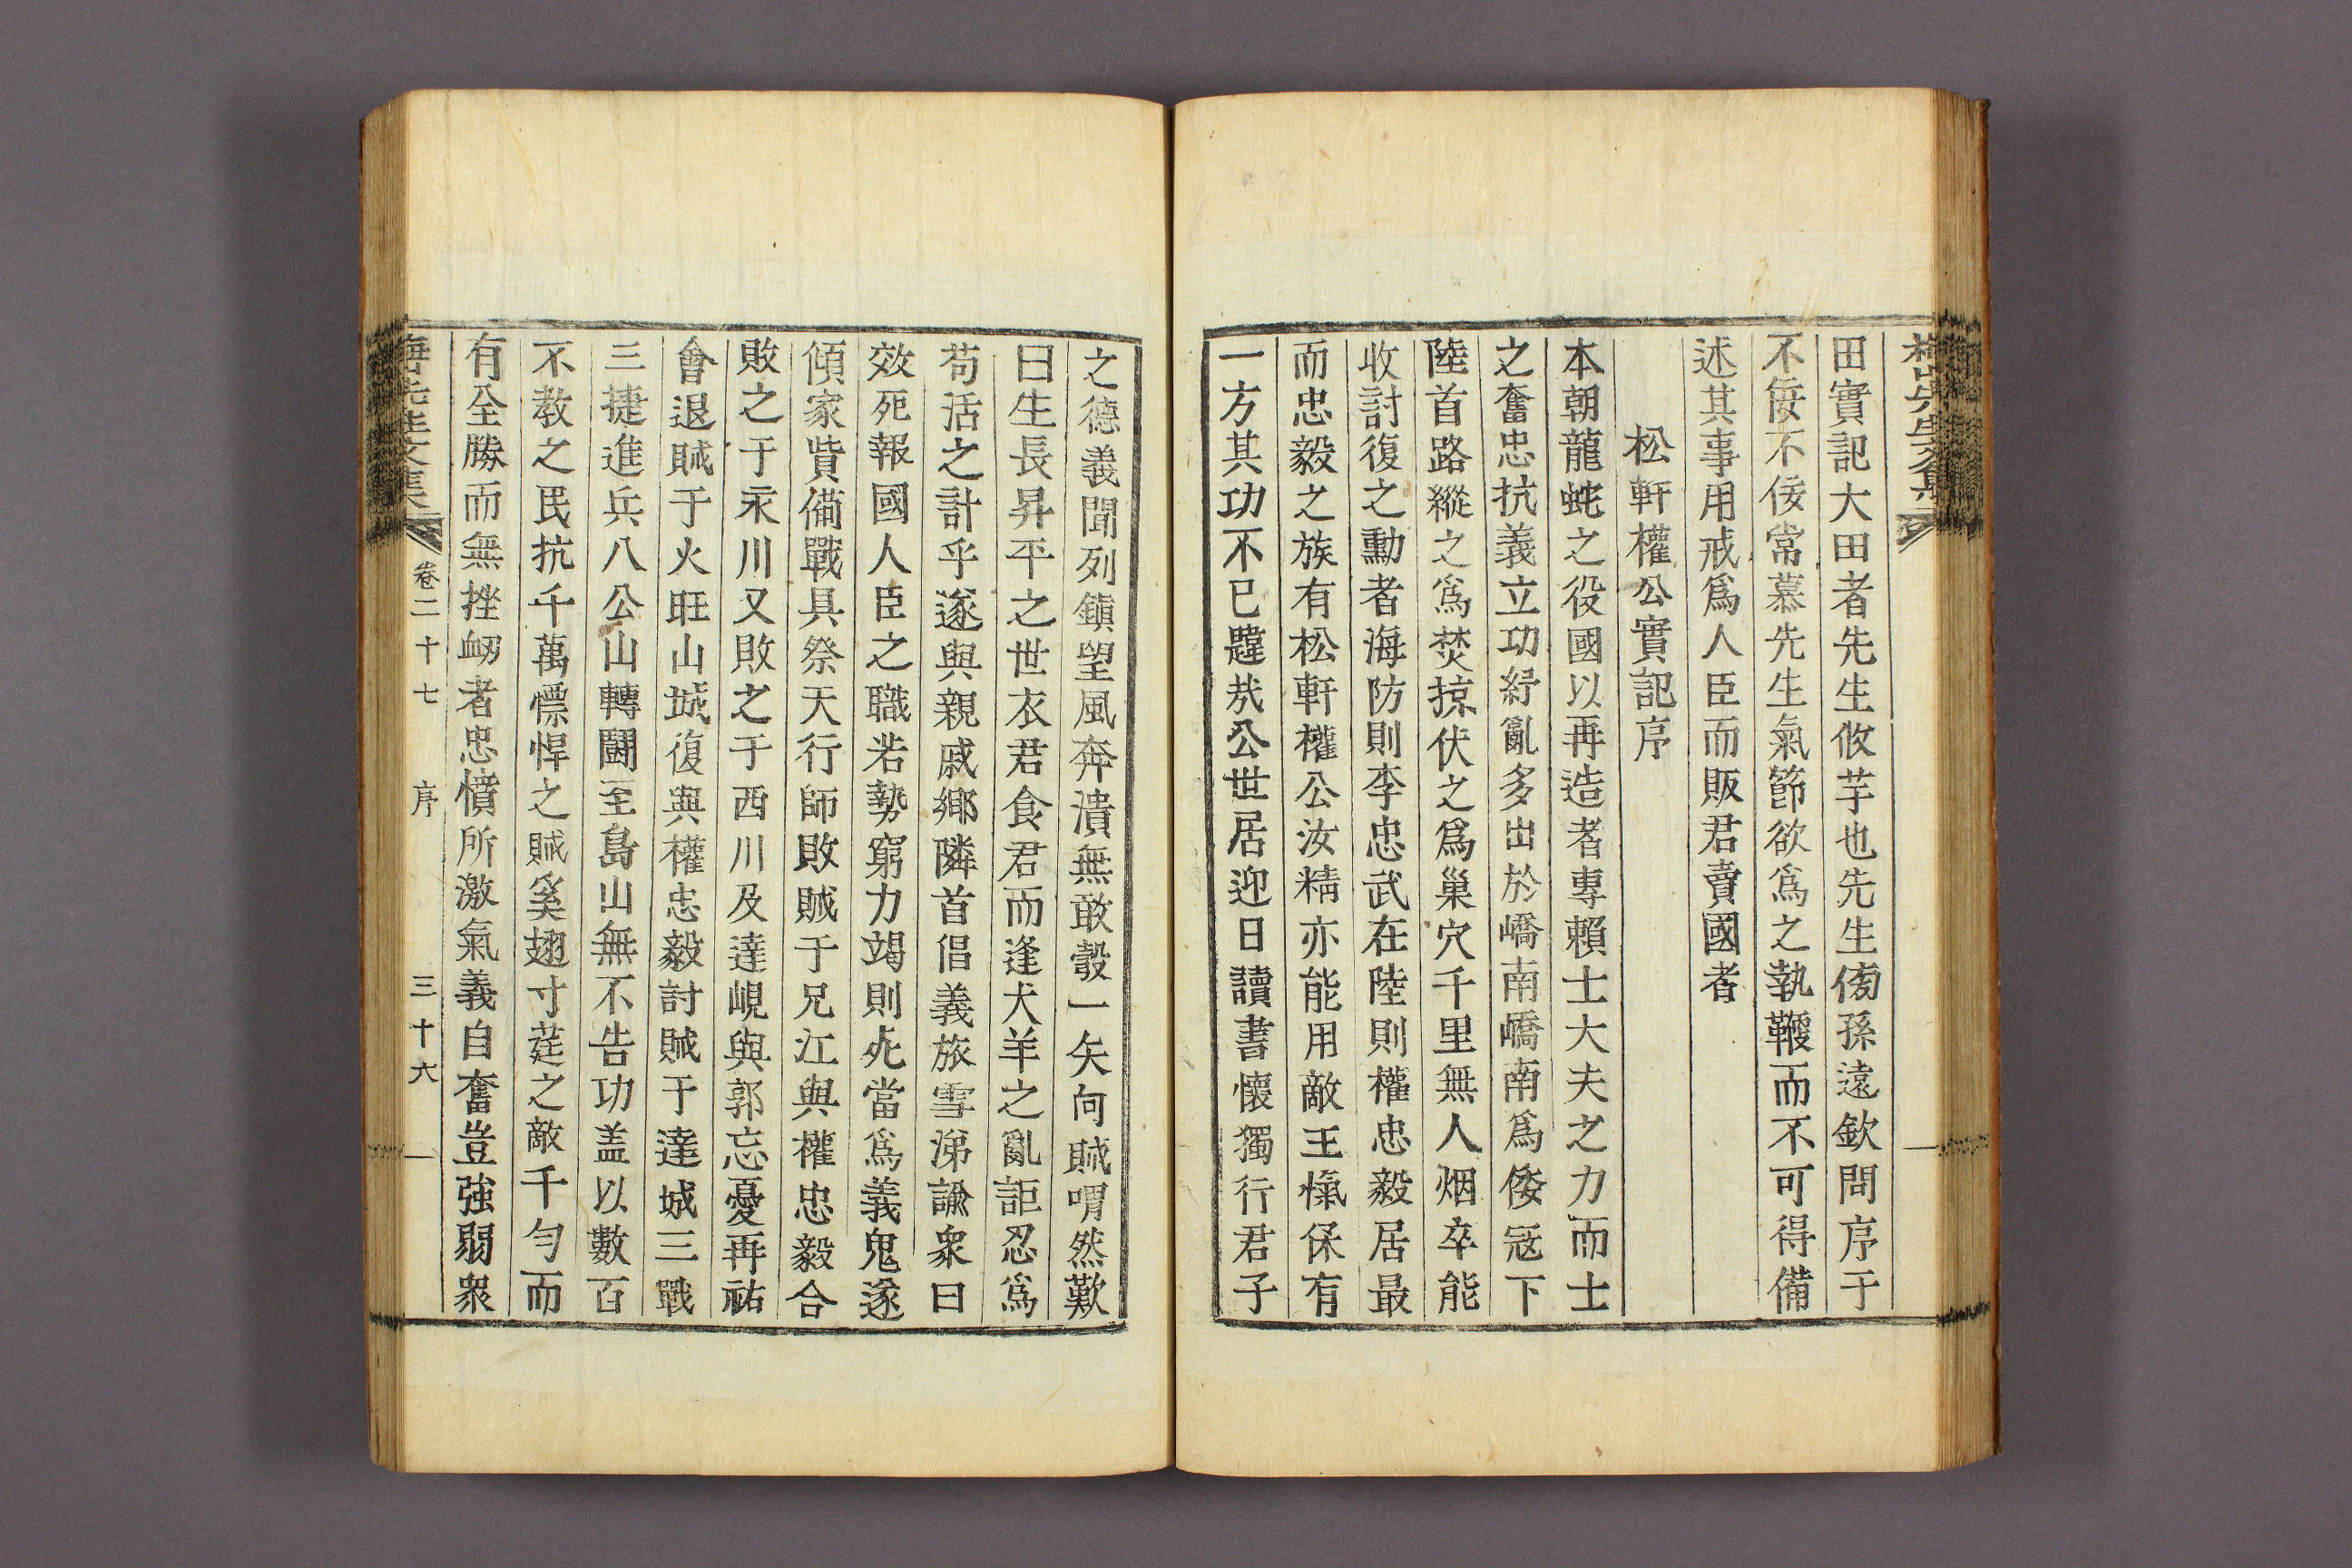 梅山先生文集
田實記大田者先生攸芋也先生傍孫遠欽問序于
不佞不佞常慕先生氣節欲爲之執鞭而不可得備
述其事用戒爲人臣而販君賣國者
松軒權公實記序
本朝龍蛇之役國以再造者專賴士大夫之力而士
之奮忠抗義立功紓亂多出於嶠南嶠南爲倭寇下
陸首路縱之爲焚掠伏之爲巢穴千里無人烟卒能
收討復之勳者海防則李忠武在陸則權忠毅居最
而忠毅之族有松軒權公汝精亦能用敵王愾保有
一方其功不已韙哉公世居迎日讀書懷獨行君子
之德義聞列鎭望風奔潰無敢彀一矢向賊喟然歎
曰生長昇平之世衣君食君而逢犬羊之亂詎忍爲
苟活之計乎遂與親戚鄕隣首倡義旅雪涕諭衆曰
效死報國人臣之職若勢窮力竭則死當爲義鬼遂
傾家貲備戰具祭天行師敗賊于兄江與權忠毅合
敗之于永川又敗之于西川及達峴與郭忘憂再祐
會退賊于火旺山城復與權忠毅討賊于達城三戰
三捷進兵八公山轉鬪至島山無不告功盖以數百
不敎之民抗千萬慓悍之賊奚翅寸莛之敵千勻而
有全勝而無挫衂者忠憤所激氣義自奮豈強弱衆
梅山先生文集 卷二十七 序 三十六